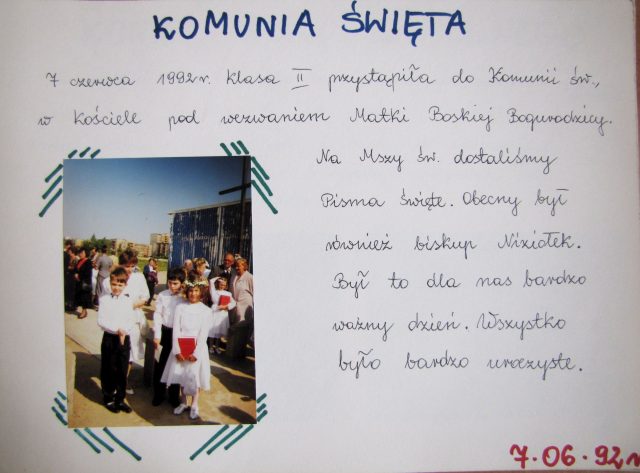 KOMUNIA ŚWIĘTA
7 czerwca 1992r. klasa II przystąpiła do Komunii św.,
w kościele pod wezwaniem Matki Boskiej Bogurodzicy.
Na Mszy św. dostaliśmy
Pisma Święte. Obecny był
również biskup Niziołek.
Był to dla nas bardzo
ważny dzień. Wszystko
było bardzo uroczyste.
7.06.92r